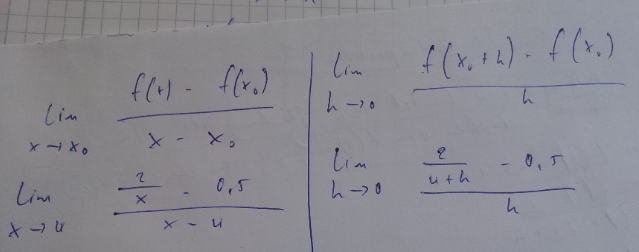 lim x→x₀ (f(x) - f(x₀)) / (x - x₀)
lim x→4 (2/x - 0,5) / (x - 4)
lim h→0 (f(x₀+h) - f(x₀)) / h
lim h→0 (2/(4+h) - 0,5) / h